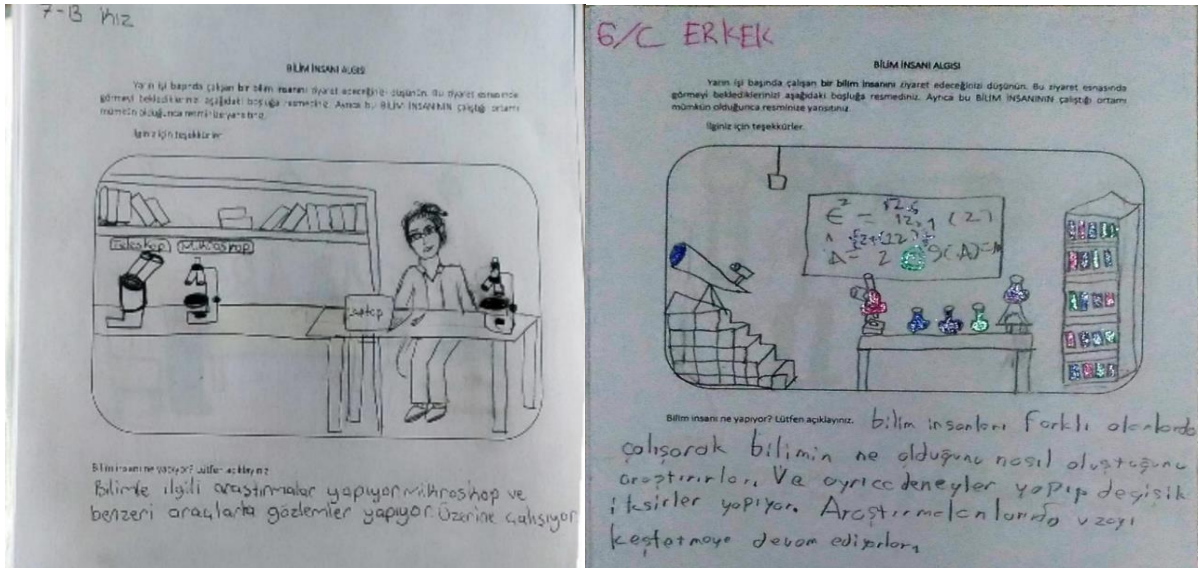 7-B KIZ
BİLİM İNSANI ALGISI
Yarın işi başında çalışan bir bilim insanını ziyaret edeceğinizi düşünün. Bu ziyaret esnasında
görmeyi beklediklerinizi aşağıdaki boşluğa resmediniz. Ayrıca bu BİLİM İNSANININ çalıştığı ortamı
mümkün olduğunca resminize yansıtınız.
İlginiz için teşekkürler.
Teleskop Mikroskop
Laptop
Bilim insanı ne yapıyor? Lütfen açıklayınız.
Bilimle ilgili araştırmalar yapıyor. Mikroskop ve
benzeri araçlarla gözlemler yapıyor. Üzerine çalışıyor
6/C ERKEK
BİLİM İNSANI ALGISI
Yarın işi başında çalışan bir bilim insanını ziyaret edeceğinizi düşünün. Bu ziyaret esnasında
görmeyi beklediklerinizi aşağıdaki boşluğa resmediniz. Ayrıca bu BİLİM İNSANININ çalıştığı ortamı
mümkün olduğunca resminize yansıtınız.
İlginiz için teşekkürler.
Bilim insanı ne yapıyor? Lütfen açıklayınız. bilim insanları farklı alanlarda
çalışarak bilimin ne olduğunu nasıl oluştuğunu
araştırırlar. Ve ayrıca deneyler yapıp değişik
iksirler yapıyor. Araştırmalarında uzayı
keşfetmeye devam ediyorlar.